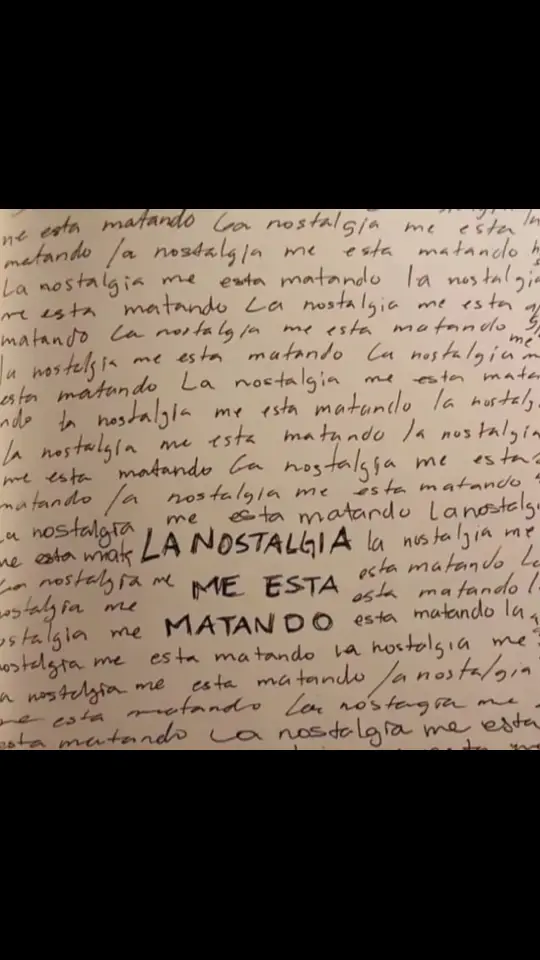 me esta matando La nostalgia me esta
matando la nostalgia me esta matando
La nostalgia me esta matando la nostalgia
me esta matando La nostalgia me esta
matando La nostalgia me esta matando
la nostalgia me esta matando La nostalgia
esta matando La nostalgia me esta
ndo la nostalgia me esta matando la
la nostalgia me esta matando la nostalgia
me esta matando La nostalgia me esta
matando la nostalgia me esta matando
La nostalgia me esta matando La nostalgia
me esta LA NOSTALGIA la nostalgia me
La nostalgia me ME ESTA esta matando
nostalgia me esta matando
nostalgia me MATANDO esta matando la
nostalgia me esta matando La nostalgia me
la nostalgia me esta matando la nostalgia
me esta matando La nostagia me
esta matando La nostalgia me esta